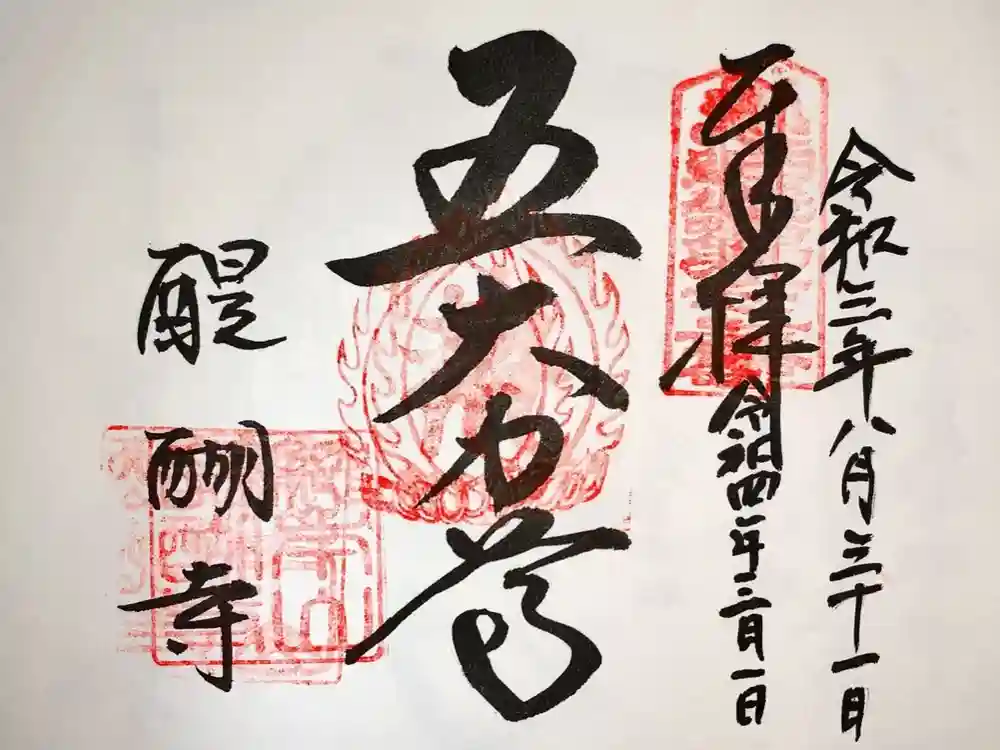 令和三年八月三十一日
奉拝
令和四年三月一日
五大力尊
醍醐寺